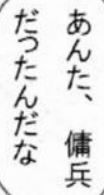 あんた、傭兵
だったんだな